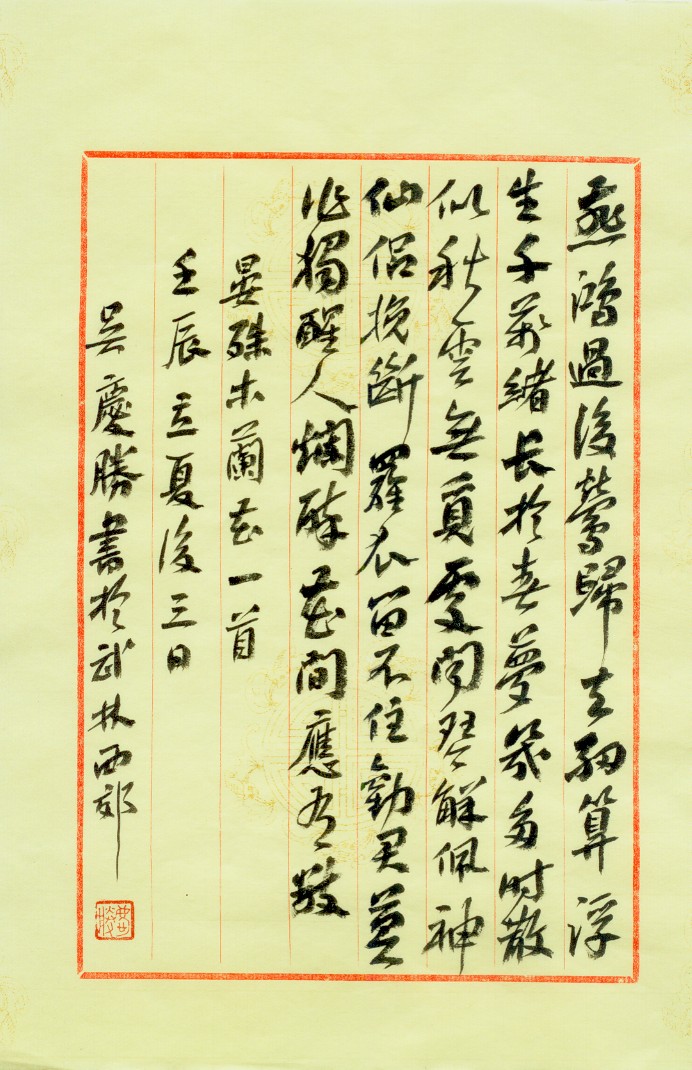 燕鴻過後鶯歸去細算浮
生千萬緒長於春夢幾多時散
似秋雲無覓處聞琴解佩神
仙侶挽斷羅衣留不住勸君莫
作獨醒人爛醉花間應有數
晏殊木蘭花一首
壬辰立夏後三日
吳慶勝書於武林西郊